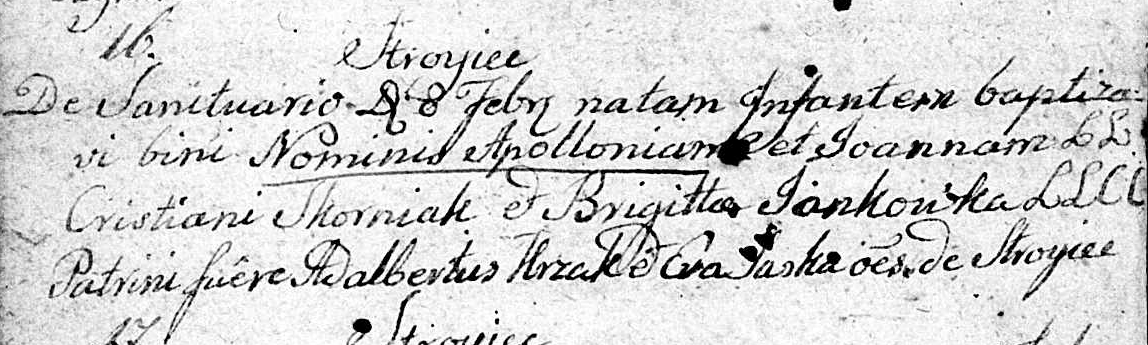 16.
Stroyiec
De Sanctuario D 8 Febr natam Infantem baptiza
vi bini Nominis Apolloniam et Joannam LL
Cristiani Skorniak et Brigittæ Jankowska LLCC
Patrini fuêre Adalbertus Krzak et Eva Jaska oēs de Stroyiec
17
Stroyiec